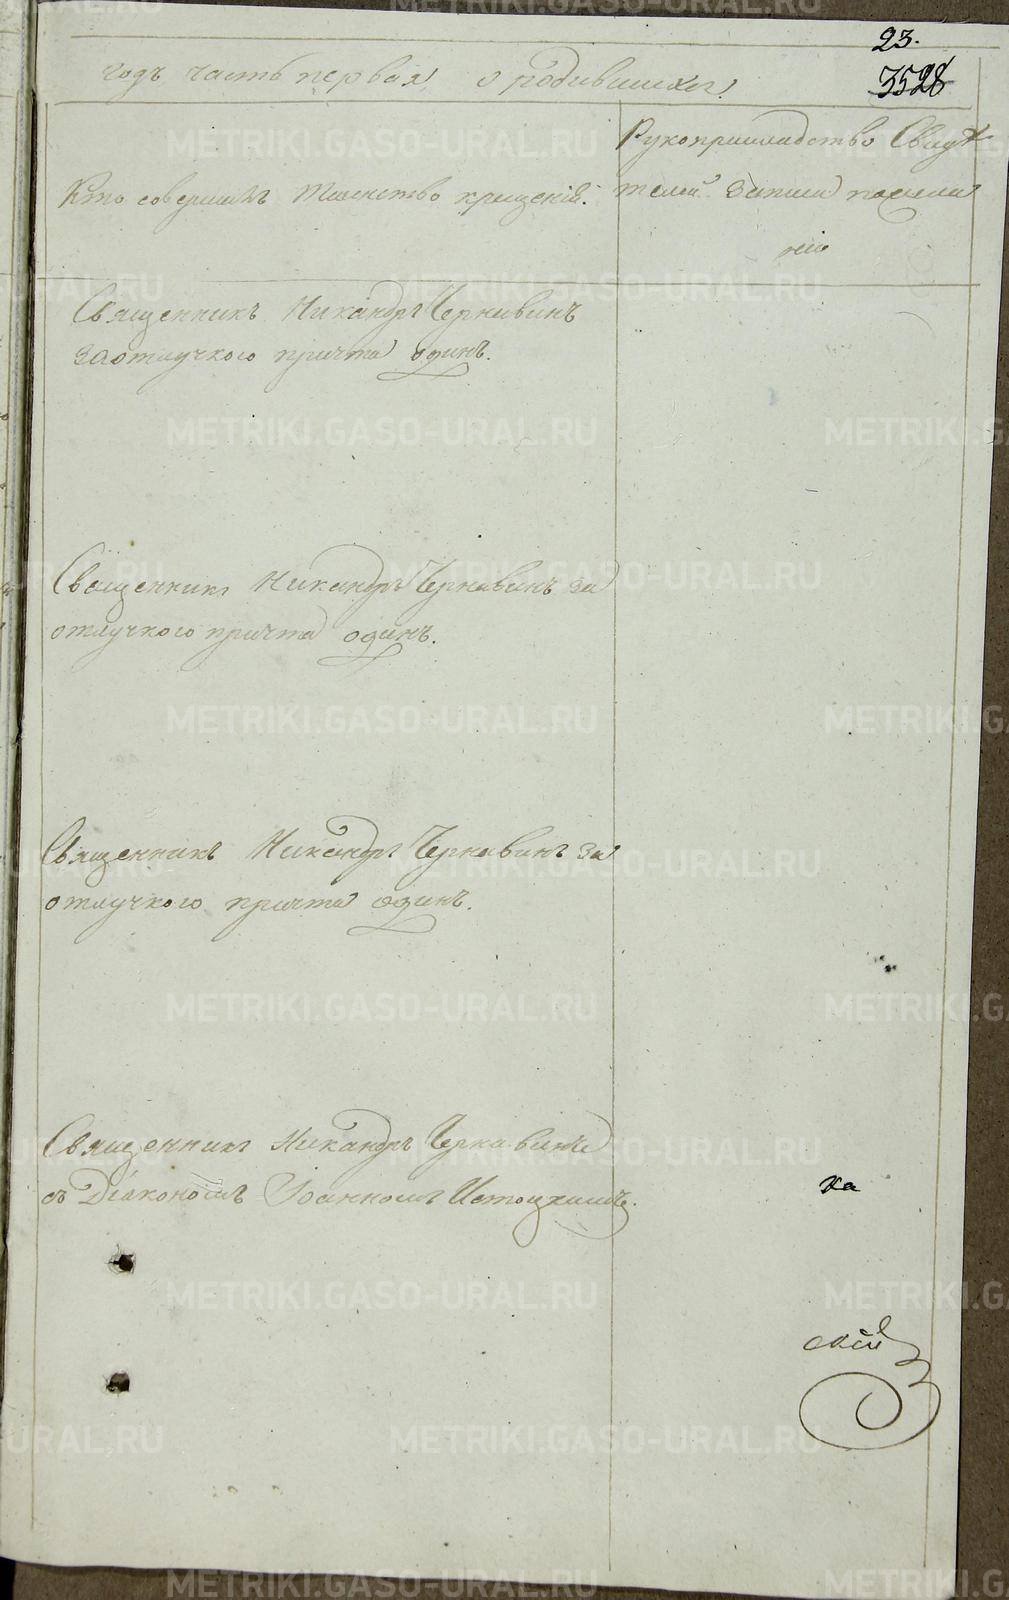 23.
3528
годъ часть первая о родившихся.
Кто совершалъ таинство крещенія.
Рукоприкладство Свидѣ
телей записи по жела
нію
Священникъ Никандръ Чернавинъ
за отлучкою причта одинъ.
Священникъ Никандръ Чернавинъ за
отлучкою причта одинъ.
Священникъ Никандръ Чернавинъ за
отлучкою причта одинъ.
Священникъ Никандръ Чернавинъ
съ Діакономъ Іоанномъ Истоцкимъ.
ка
скій
METRIKI.GASO-URAL.RU